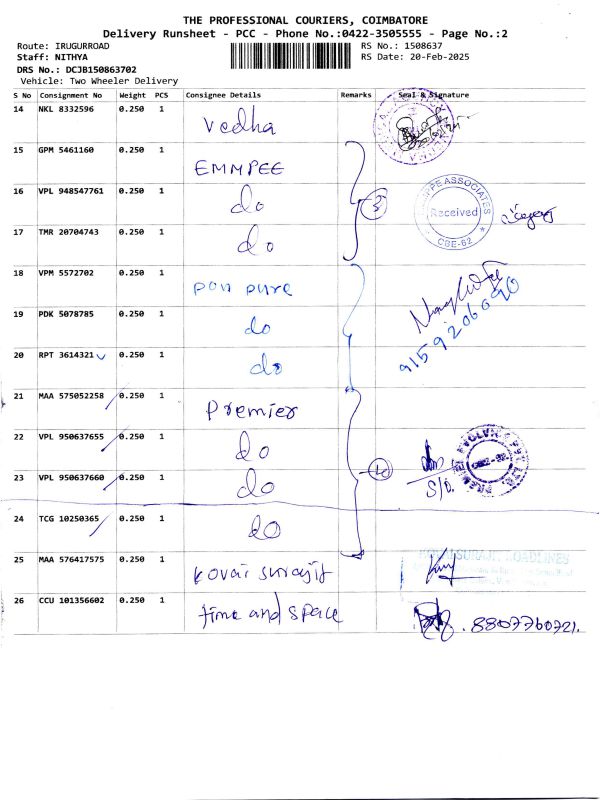 THE PROFESSIONAL COURIERS, COIMBATORE
Delivery Runsheet - PCC - Phone No.:0422-3505555 - Page No.:2
Route: IRUGURROAD RS No.: 1508637
Staff: NITHYA RS Date: 20-Feb-2025
DRS No.: DCJB150863702
Vehicle: Two Wheeler Delivery
S No Consignment No Weight PCS Consignee Details Remarks Seal & Signature
14 NKL 8332596 0.250 1 Vedha
15 GPM 5461160 0.250 1 EMMPEE
16 VPL 948547761 0.250 1 do
ASSOCIATES
Received
CBE-62
17 TMR 20704743 0.250 1 do
18 VPM 5572702 0.250 1 pon pure
9159206090
19 PDK 5078785 0.250 1 do
20 RPT 3614321 0.250 1 do
21 MAA 575052258 0.250 1 Premier
22 VPL 950637655 0.250 1 do
23 VPL 950637660 0.250 1 do
24 TCG 10250365 0.250 1 do
25 MAA 576417575 0.250 1 kovai surajit
26 CCU 101356602 0.250 1 time and space 8807760721.